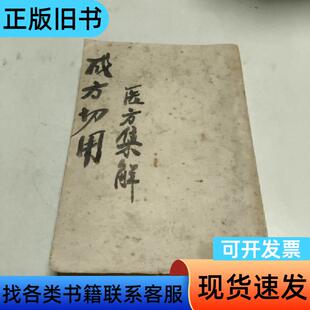 正版旧书
成方切用
医方集解
可开发票
找各类书籍联系客服
现货速发